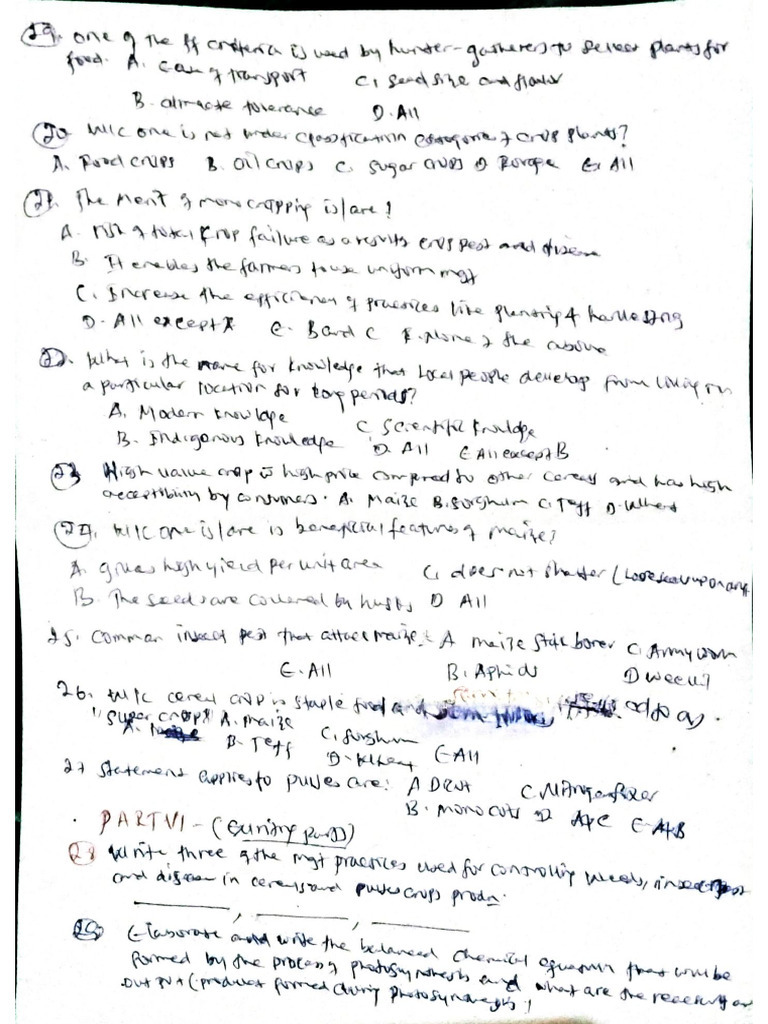 19. One of the ff criteria is used by hunter-gatherers to select plants for
food. A. Ease of transport C. Seed size and flavor
B. climate tolerance D. All
20 w/c one is not under classification categories of crop plants?
A. Food crops B. Oil crops C. Sugar crops D E. All
21. The merit of monocropping is/are?
A. risk of total crop failure as a results crop pest and disease
B. It enables the farmers to use uniform mgt
C. Increase the efficiency of practices like planting & harvesting
D. All except A E. B and C F. None of the above
22. What is the name for knowledge that local people develop from living in
a particular location for long periods?
A. Modern knowldge C Scientific knowldge
B. Indigenous knowledge D. All E All except B
23 High value crop is high price compared to other cereals and has high
acceptibility by consumers. A. Maize B. Sorghum C. Teff D. Wheat
24. w/c one is/are is beneficial features of maize?
A. gives high yield per unit area C. does not shatter (
B. The seeds are covered by husks D All
25. Common insect pest that attack maize. A maize stalk borer C. Army worm
E. All B. Aphids D weevil
26. w/c cereal crop is staple food and as.
"super crops" A. maize C. Sorghum
B. Teff D. Wheat E All
27 Statement applies to pulses are: A Dicot C. Nitrogen fixer
B. monocots D A&C E A&B
PART VI - ( part)
28 Write three of the mgt practices used for controlling weeds, insect pest
and disease in cereals and pulses crops prodn.
, ,
29 Elaborate and write the balanced chemical equation that will be
formed by the process of photosynthesis and what are the necessary
output (product formed during photosynthesis)